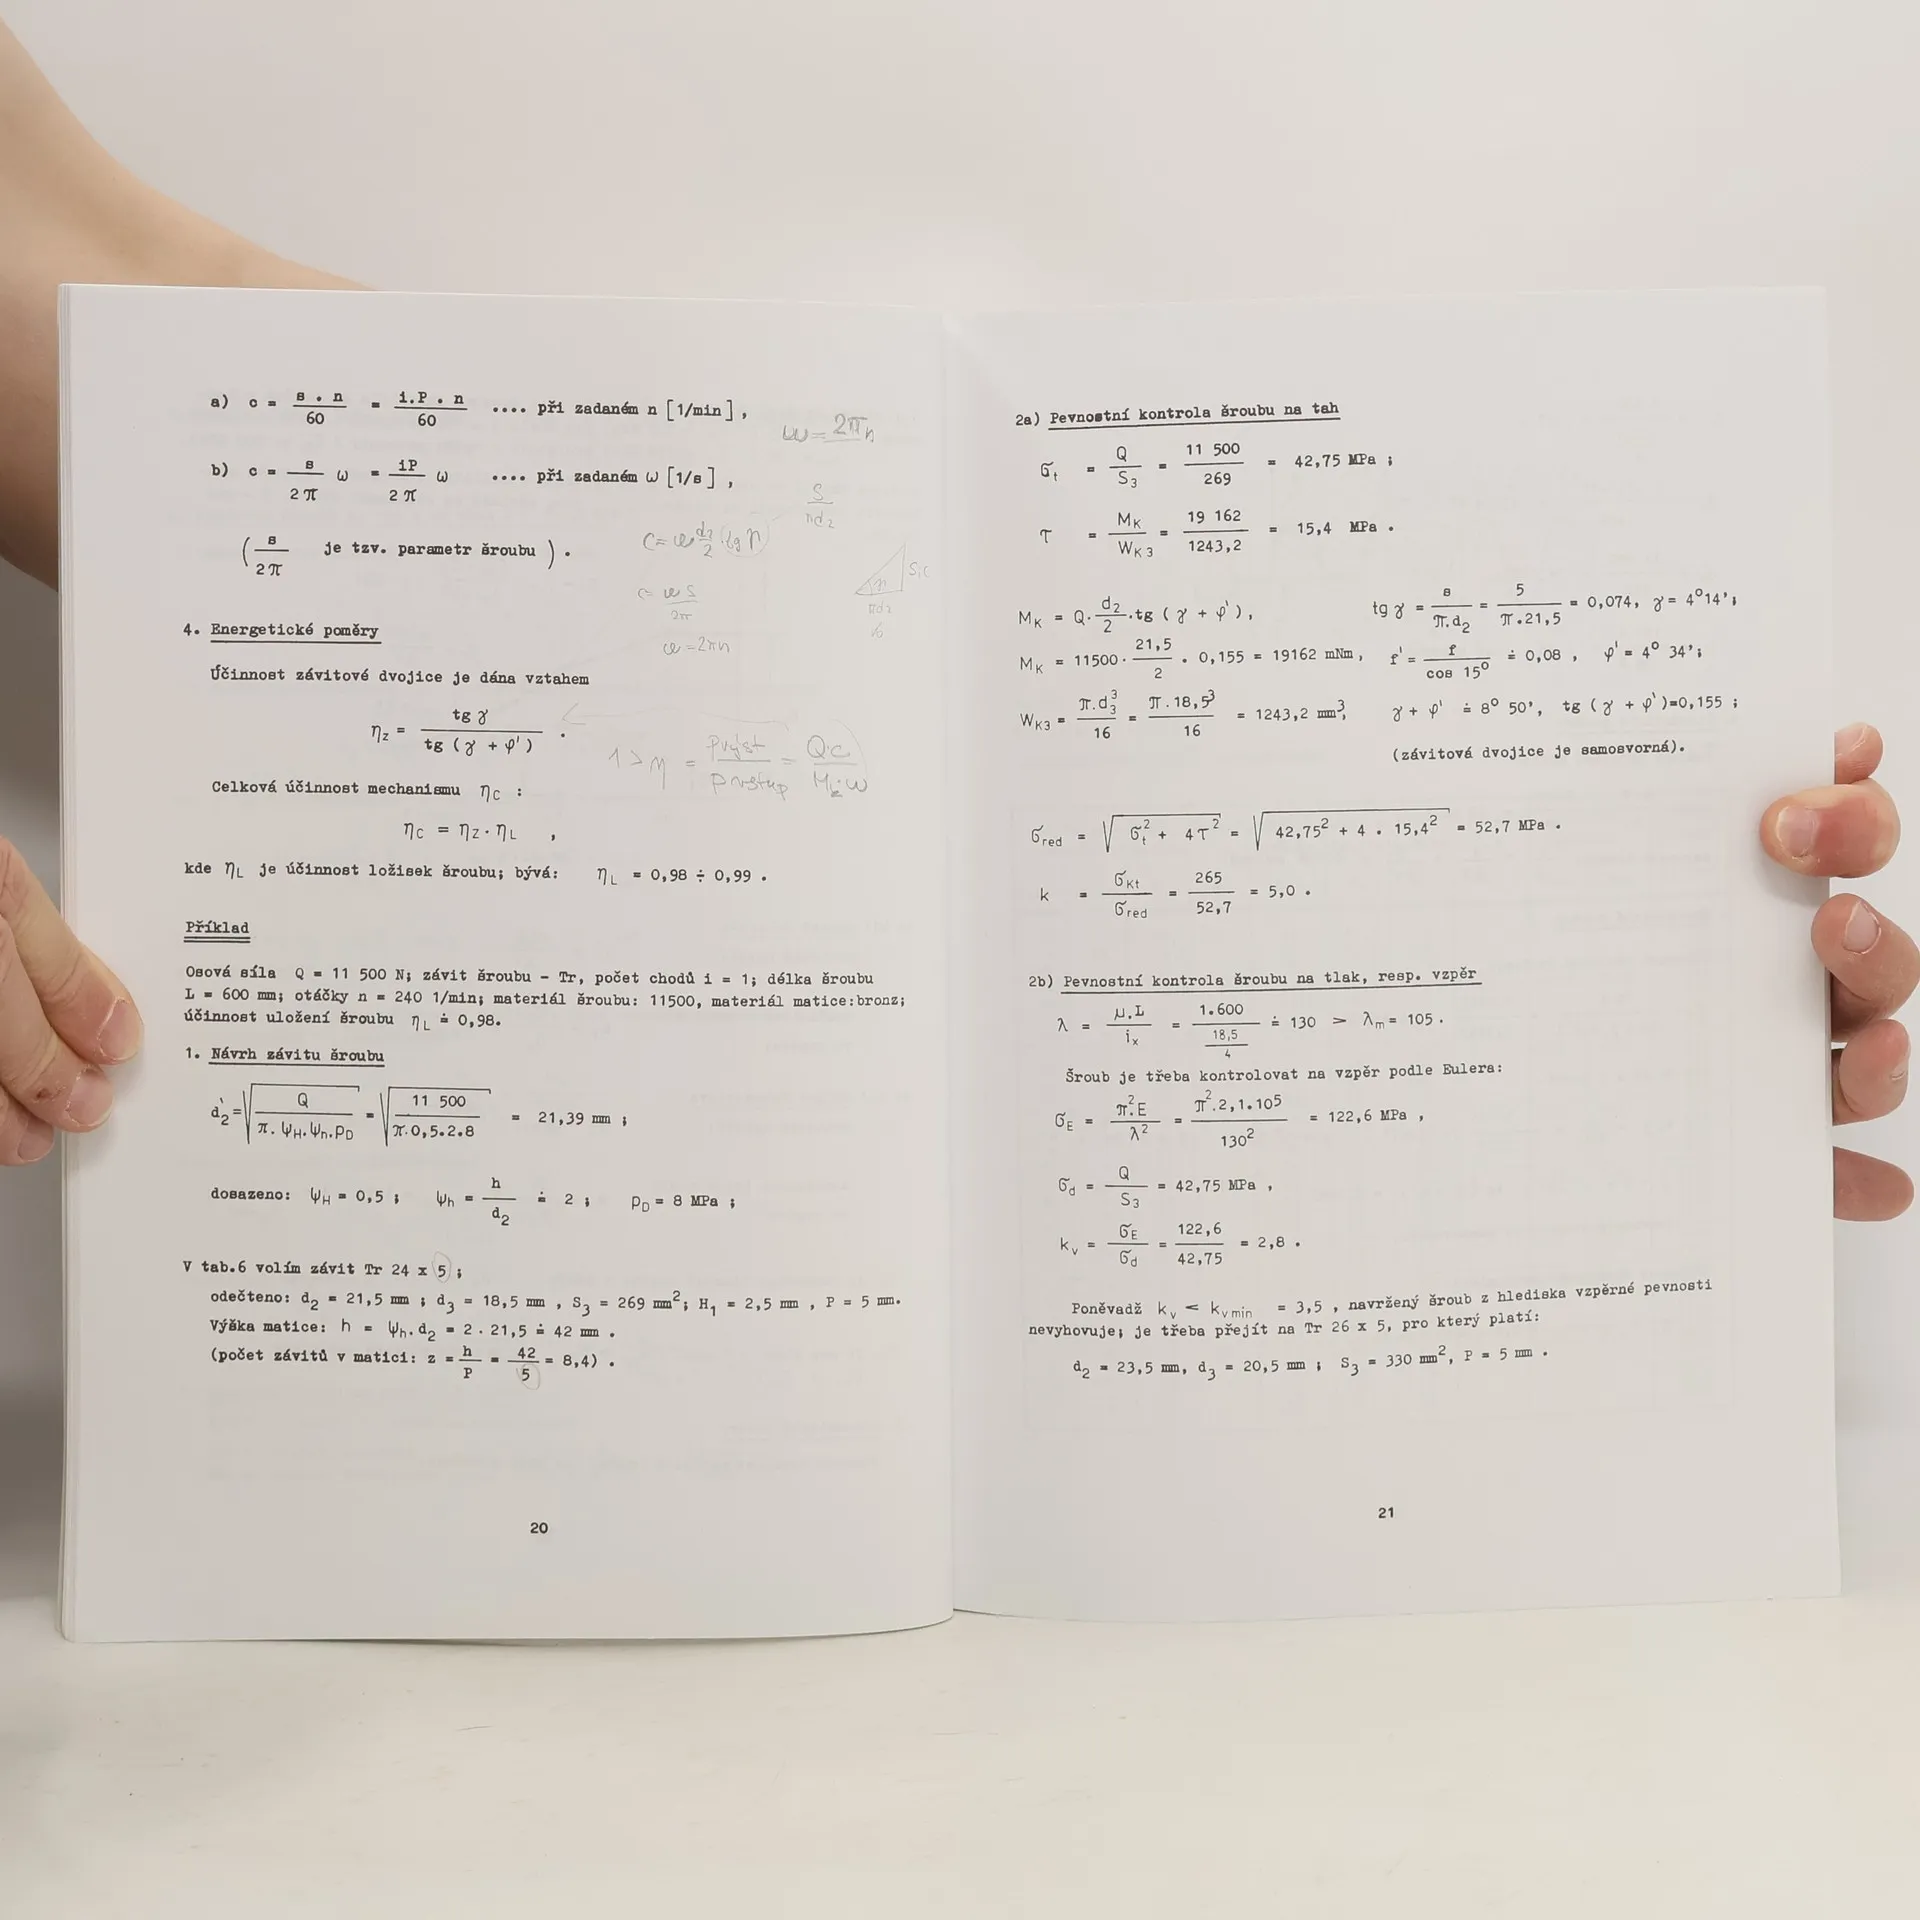 a) c = s . n / 60 = i.P . n / 60 .... při zadaném n [1/min],
ω = 2πn
b) c = s / 2π ω = iP / 2π ω .... při zadaném ω [1/s],
s / πd2
( s / 2π je tzv. parametr šroubu ) .
c = ω d2/2 . tg γ
c = ω s / 2π
πd2
ω = 2πn
4. Energetické poměry
Účinnost závitové dvojice je dána vztahem
ηz = tg γ / tg ( γ + φ' ) .
1 > η = Pvýst / Pvstup = Q.c / Mk.ω
Celková účinnost mechanismu ηC :
ηC = ηZ . ηL ,
kde ηL je účinnost ložisek šroubu; bývá: ηL = 0,98 ÷ 0,99 .
Příklad
Osová síla Q = 11 500 N; závit šroubu - Tr, počet chodů i = 1; délka šroubu
L = 600 mm; otáčky n = 240 1/min; materiál šroubu: 11500, materiál matice:bronz;
účinnost uložení šroubu ηL ≐ 0,98.
1. Návrh závitu šroubu
d2' = √ Q / π . ψH . ψh . pD = √ 11 500 / π.0,5.2.8 = 21,39 mm ;
dosazeno: ψH = 0,5 ; ψh = h / d2 ≐ 2 ; pD = 8 MPa ;
V tab.6 volím závit Tr 24 x 5 ;
odečteno: d2 = 21,5 mm ; d3 = 18,5 mm , S3 = 269 mm²; H1 = 2,5 mm , P = 5 mm.
Výška matice: h = ψh . d2 = 2 . 21,5 ≐ 42 mm .
(počet závitů v matici: z = h / P = 42 / 5 = 8,4) .
20
2a) Pevnostní kontrola šroubu na tah
σt = Q / S3 = 11 500 / 269 = 42,75 MPa ;
τ = MK / WK3 = 19 162 / 1243,2 = 15,4 MPa .
MK = Q . d2 / 2 . tg ( γ + φ' ), tg γ = s / π.d2 = 5 / π.21,5 = 0,074, γ = 4°14';
MK = 11500 . 21,5 / 2 . 0,155 = 19162 mNm, f' = f / cos 15° ≐ 0,08 , φ' = 4° 34';
WK3 = π.d3³ / 16 = π.18,5³ / 16 = 1243,2 mm³, γ + φ' ≐ 8° 50', tg ( γ + φ' )=0,155 ;
(závitová dvojice je samosvorná).
σred = √ σt² + 4τ² = √ 42,75² + 4 . 15,4² = 52,7 MPa .
k = σKt / σred = 265 / 52,7 = 5,0 .
2b) Pevnostní kontrola šroubu na tlak, resp. vzpěr
λ = μ.L / ix = 1.600 / 18,5 / 4 ≐ 130 > λm = 105 .
Šroub je třeba kontrolovat na vzpěr podle Eulera:
σE = π².E / λ² = π².2,1.105 / 130² = 122,6 MPa ,
σd = Q / S3 = 42,75 MPa ,
kv = σE / σd = 122,6 / 42,75 = 2,8 .
Poněvadž kv < kv min = 3,5 , navržený šroub z hlediska vzpěrné pevnosti
nevyhovuje; je třeba přejít na Tr 26 x 5, pro který platí:
d2 = 23,5 mm, d3 = 20,5 mm ; S3 = 330 mm², P = 5 mm .
21